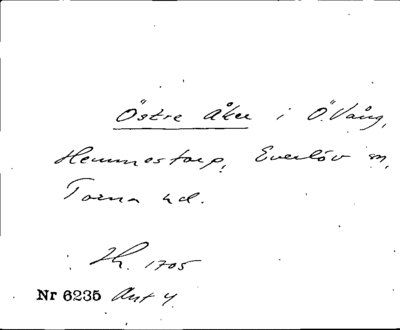 Östre åker i Ö. Vång,
Hemmestorp, Everlöv sn,
Torna hd.
Jh. 1705
Nr 6235 Ant 4